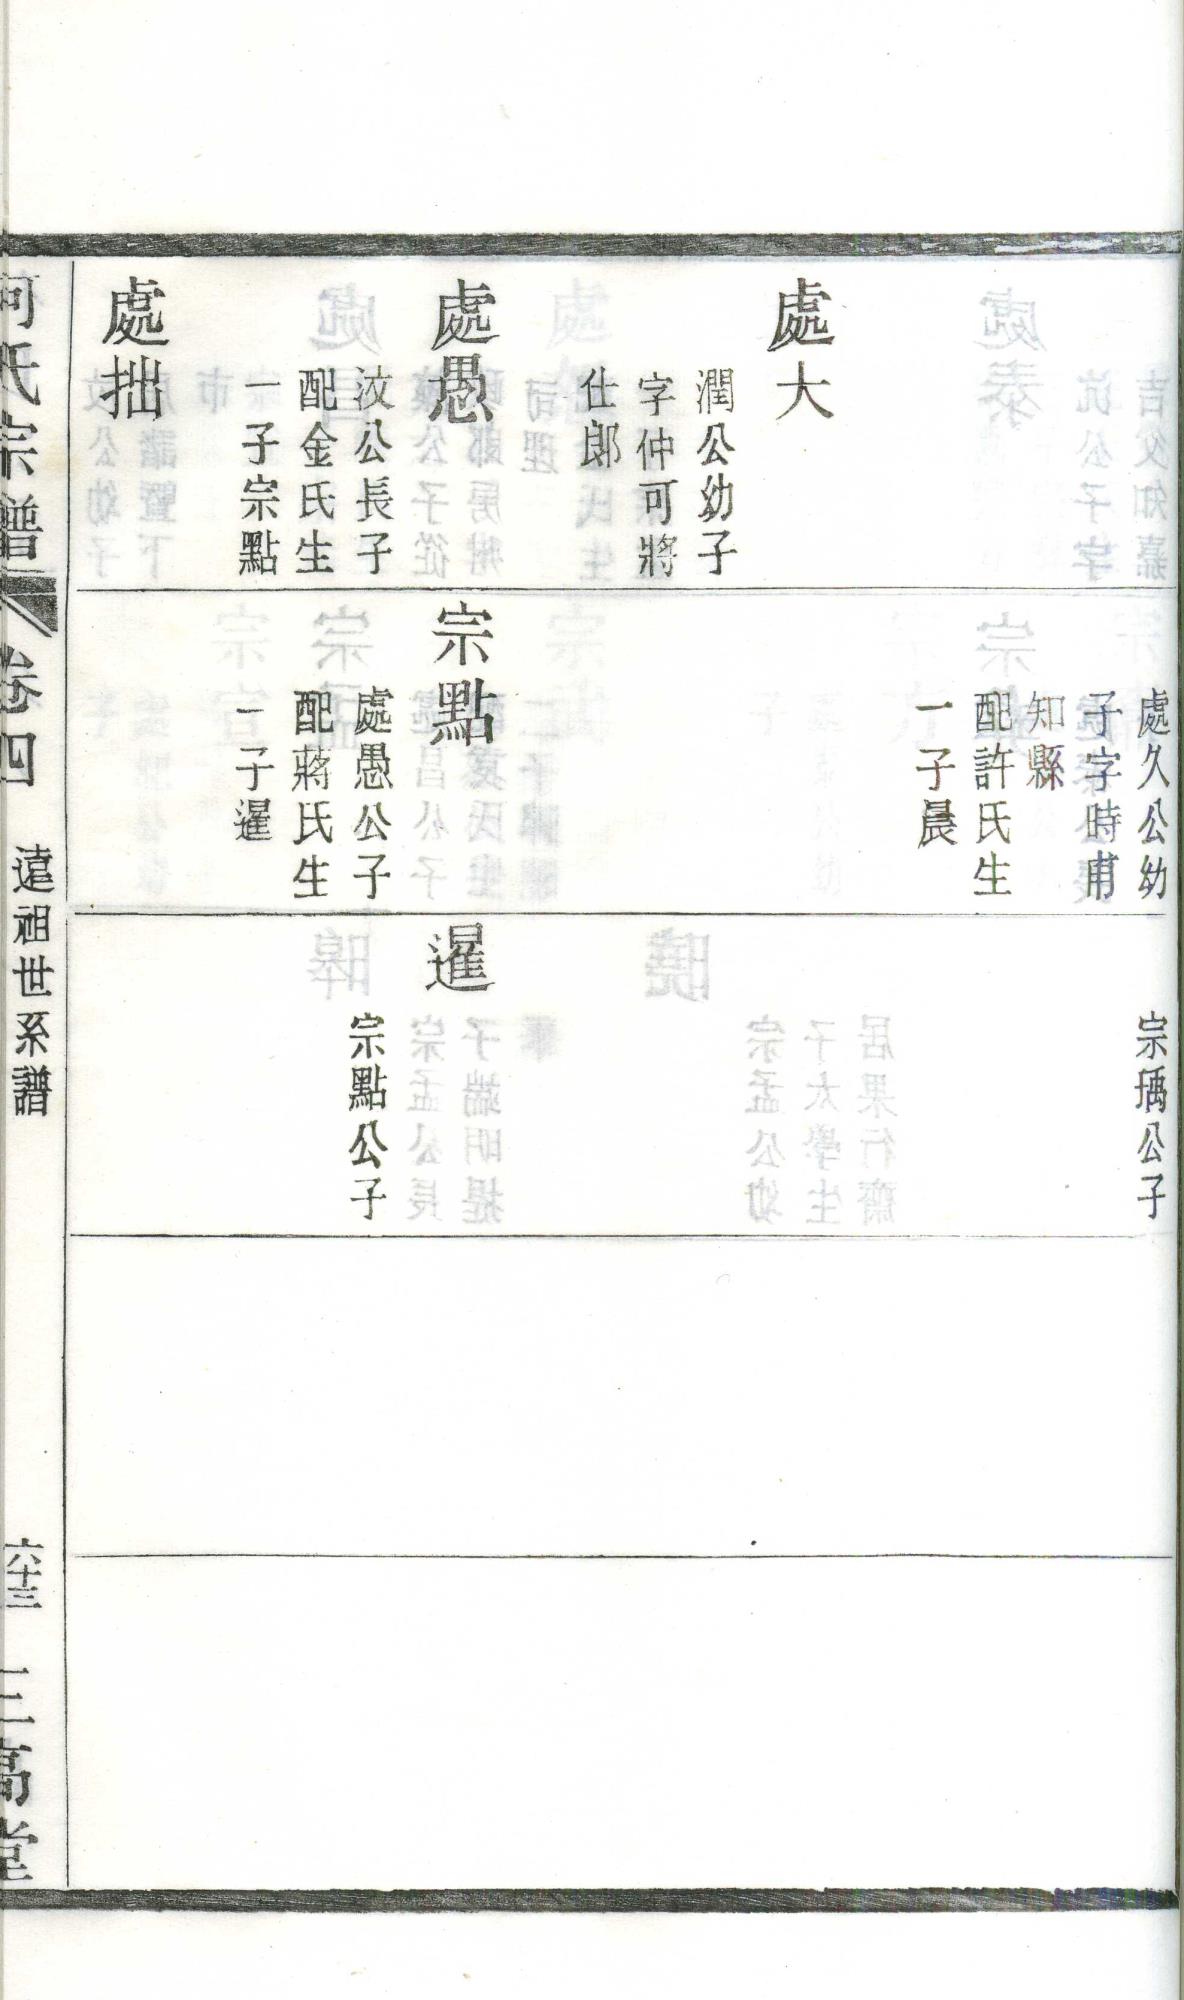 處大
潤公幼子
字仲可將
仕郎
處愚
汶公長子
配金氏生
一子宗點
處拙
處久公幼
子字時甫
知縣
配許氏生
一子晨
宗點
處愚公子
配蔣氏生
一子暹
宗瑀公子
暹
宗點公子
何氏宗譜
卷四
遠祖世系譜
六十三
三高堂